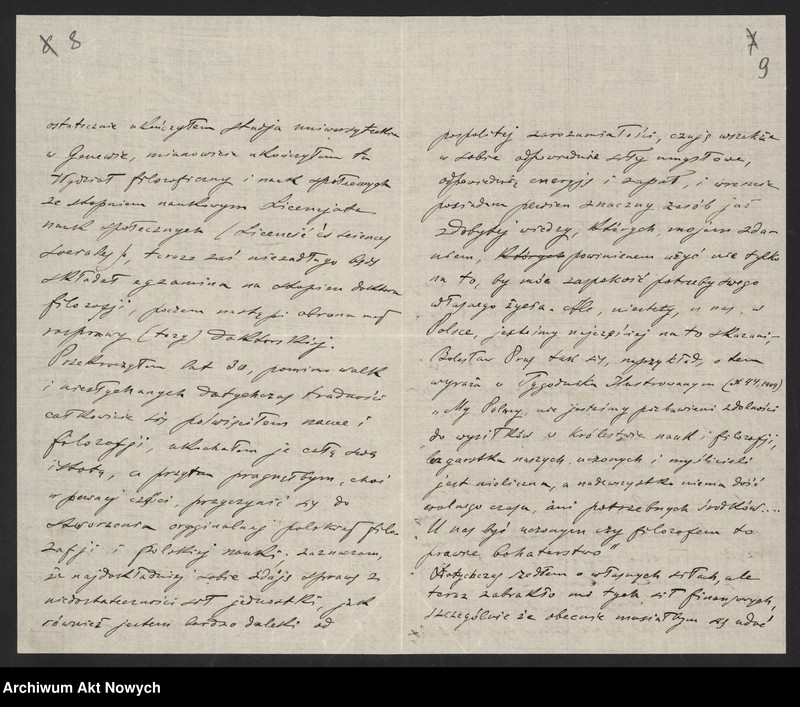 8
ostatecznie ukończyłem studja uniwersyteckie
w Genewie, mianowicie ukończyłem tu
Wydział filozoficzny i nauk społecznych
ze stopniem naukowym Licencjata
nauk społecznych (Licencié ès sciences
sociales), teraz zaś niezadługo będę
składał egzamina na stopień doktora
filozofji, poczem nastąpi obrona mej
rozprawy (tezy) doktorskiej.
Przekroczyłem lat 30, pomimo walk
i niesłychanych dotychczas trudności
całkowicie się poświęciłem nauce i
filozofji, ukochałem je całą swą
istotą, a przytem pragnąłbym, choć
w pewnej części, przyczynić się do
stworzenia oryginalnej polskiej filo-
zofji i polskiej nauki. Zaznaczam,
że najdokładniej sobie zdaję sprawę z
niedostateczności sił jednostki, jak
również jestem bardzo daleki od
7
9
pospolitej zarozumiałości, czuję wszakże
w sobie odpowiednie siły umysłowe,
odpowiednią energję i zapał, i wreszcie
posiadam pewien znaczny zasób już
zdobytej wiedzy, których, mojem zda-
niem, których powinienem użyć nie tylko
na to, by móc zaspakoić potrzeby swego
własnego życia. Ale, niestety, u nas, w
Polsce, jesteśmy najczęściej na to skazani.
Bolesław Prus tak się, naprzykład, o tem
wyraża w Tygodniku Ilustrowanym (№ 44, 1909)
"My Polacy nie jesteśmy pozbawieni zdolności
do wysiłków w królestwie nauk i filozofji,
garstka naszych uczonych i myślicieli
jest nieliczna, a nadewszystko niema dość
wolnego czasu, ani potrzebnych środków....
U nas być uczonym czy filozofem to
prawie bohaterstwo"
Dotychczas szedłem o własnych siłach, ale
teraz zabrakło mi tych sił finansowych,
szczególnie że obecnie musiałbym się udać
Archiwum Akt Nowych